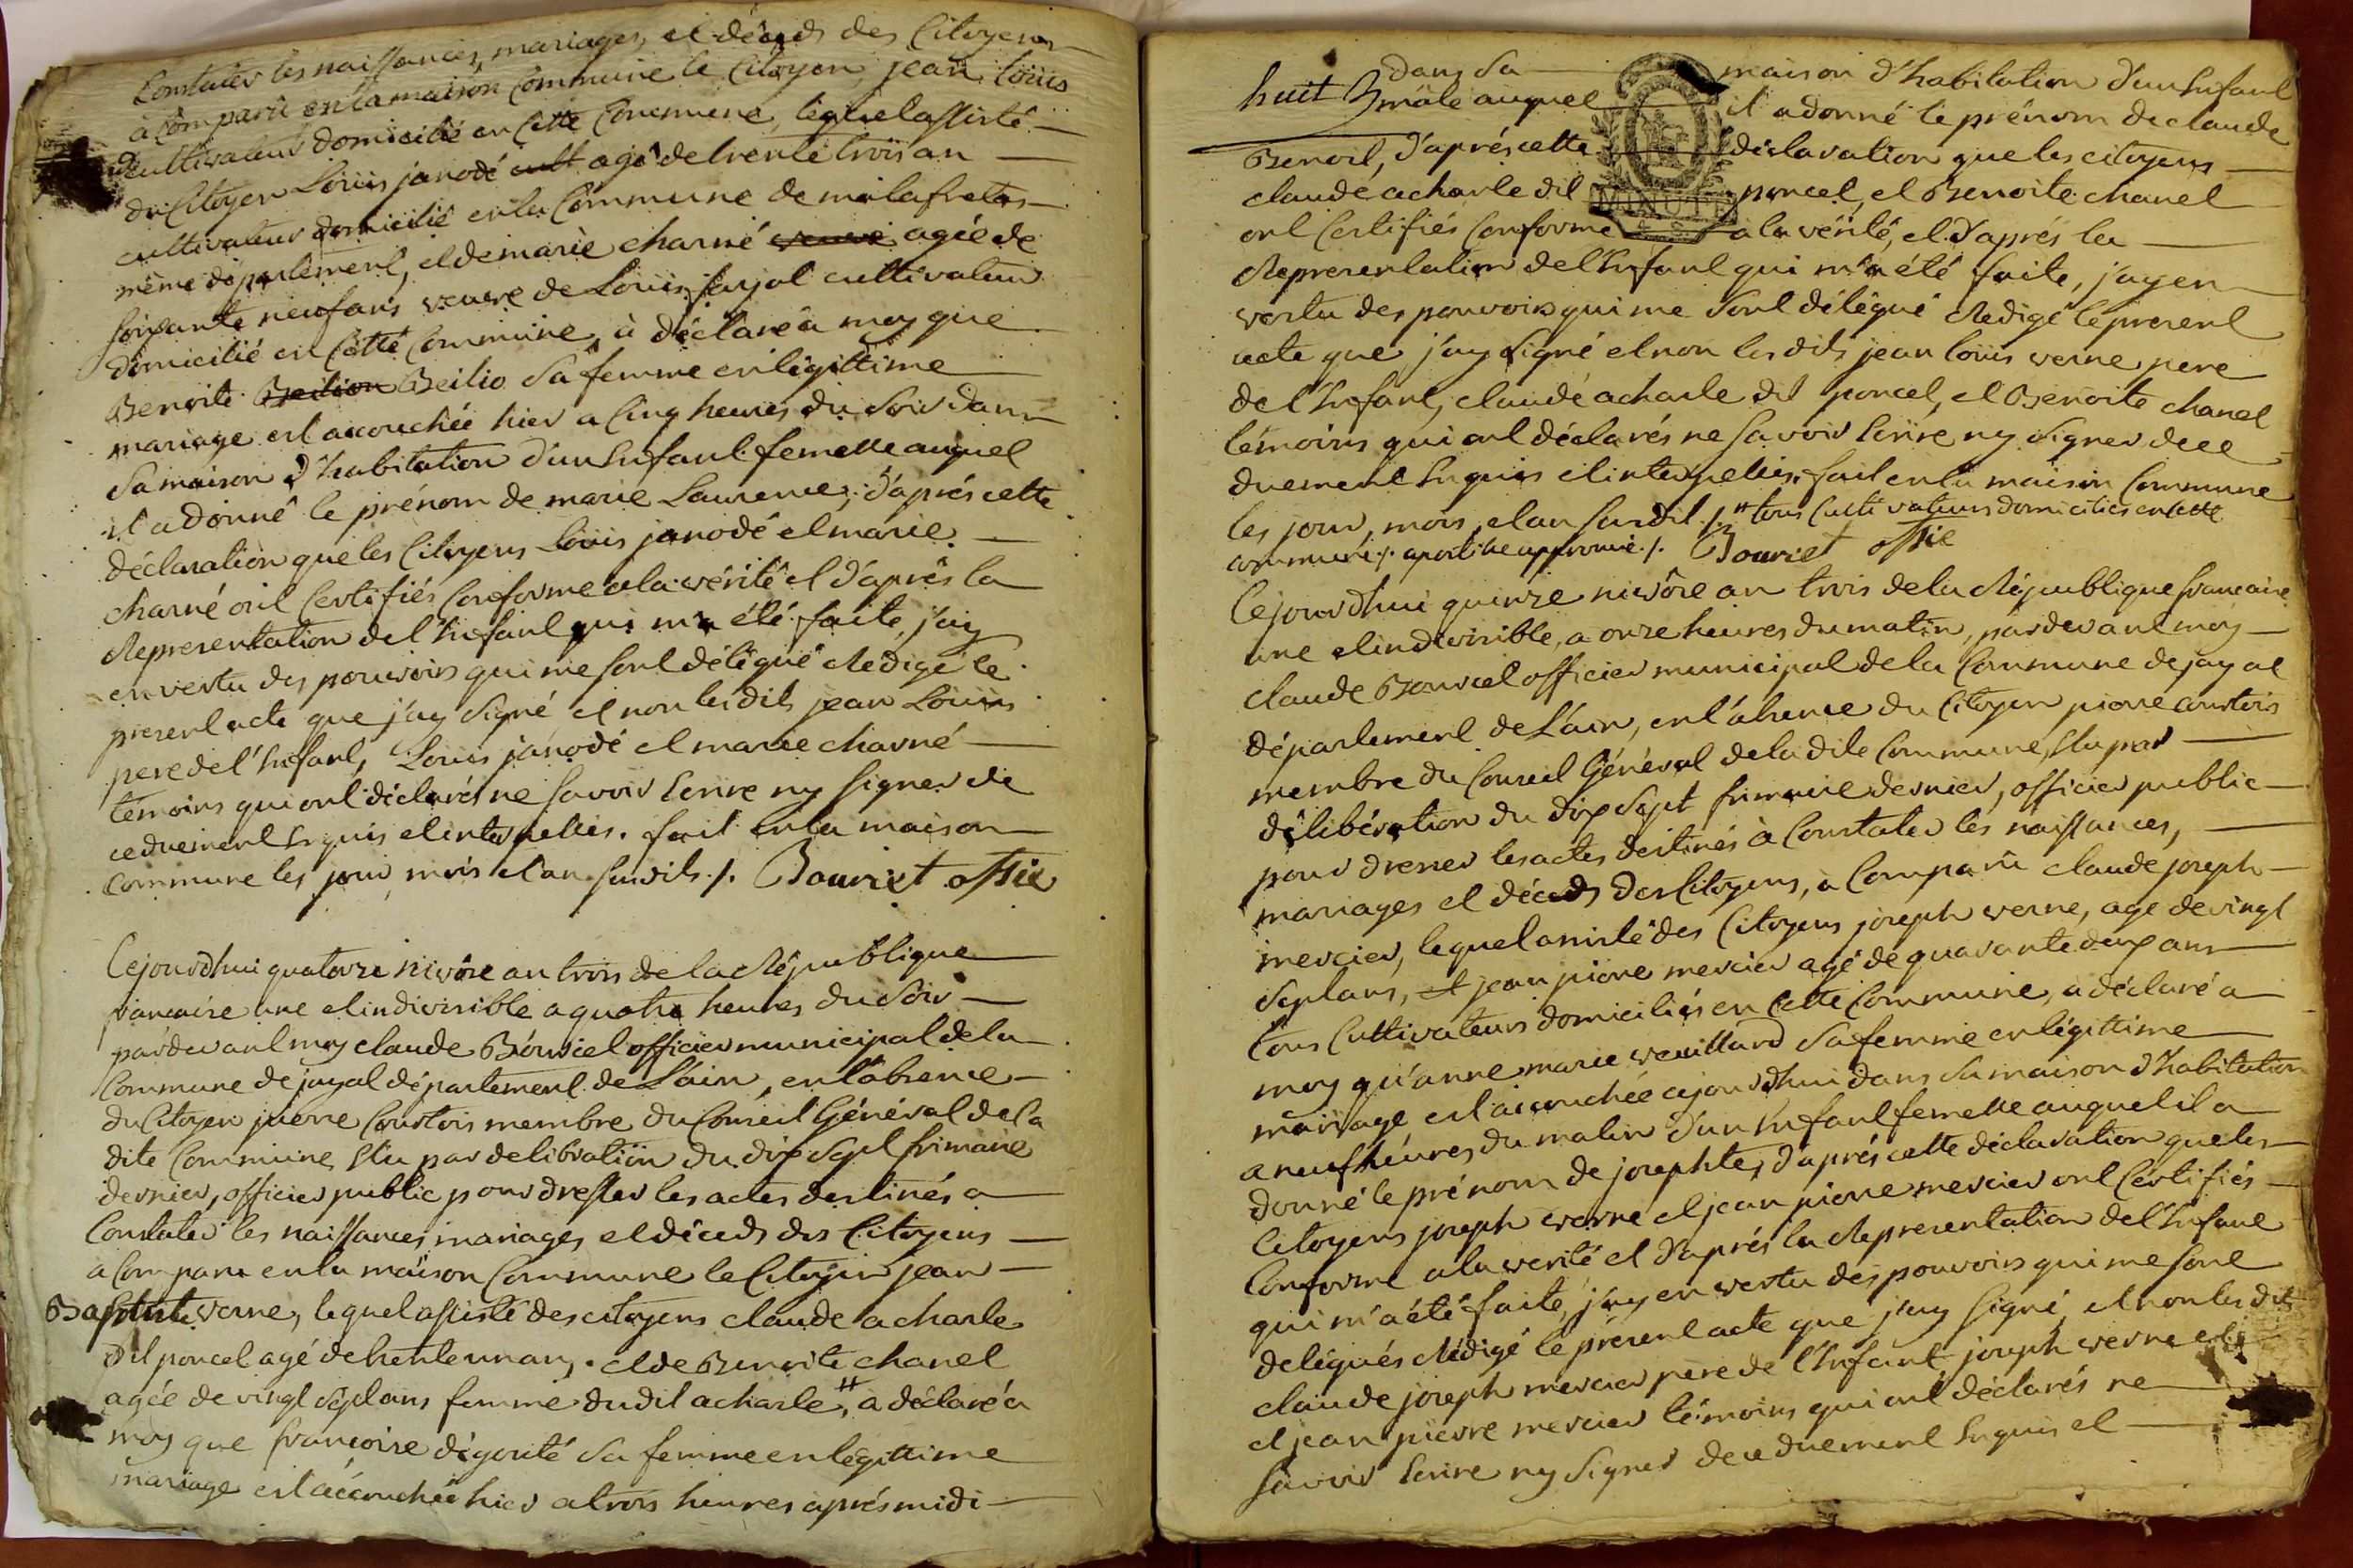 Constater les naissances, mariages, et décéds des Citoyens
à Comparû en la maison Commune le Citoyen jean loüis
Cultivateur domicilié en Cette Commune, lequel assisté
du Citoyen Loüis janodé cult agé de trente trois an
cultivateur domicilié en la Commune de malafretas
même département, et de marie charné veuve agée de
soixante neuf ans veuve de Loüis jayal cultivateur
domicilié en Cette Commune, à déclaré a moy que
Benoite Beilion Beilio sa femme en légittime
mariage est accouchée hier a Cinq heures du Soir dans
Sa maison d'habitation d'un Enfant femelle auquel
il a donné le prénom de marie Laurence, d'aprés cette
déclaration que les Citoyens Loüis janodé et marie
charné ont Certifiés Conforme a la vérité et d'aprés la
Representation de l'Enfant qui m'a été faite, j'ay
en vertu des pouvoirs qui me sont délégué Redigé le
present acte que j'ay signé et non les dits jean Loüis
pere de l'Enfant, Loüis janodé et marie charné
témoins qui ont déclarés ne savoir Ecrire ny signer de
ce duement Enquis et interpellés. fait en la maison
commune les jour mois et an susdits ./. Bouriet offic
Cejourdhui quatorze nivôse an trois de la République
francaise une et indivisible a quatre heures du soir
pardevant moy claude Bouriet officier municipal de la
Commune de jayal département de L'ain, en l'absence
du Citoyen pierre Courtois membre du Conseil Général de la
dite Commune Elu par deliberation du dix sept frimaire
dernier, officier public pour dresser les actes destinés a
Constater les naissances mariages et décéds des Citoyens
a Comparu en la maison Commune le Citoyen jean
Baptiste verne, lequel assisté des citoyens claude acharle
dit poncel agé de trente un ans. et de Benoite chanel
agée de vingt sept ans femme du dit acharle,# a déclaré a
moy que francoise dégouté sa femme en légittime
mariage est accouchée hier a trois heures aprés midi
huit dans Sa maison d'habitation d'un Enfant
mâle auquel il a donné le prénom de claude
Benoit, d'aprés cette déclaration que les citoyens
claude acharle dit poncel, et Benoite chanel
MINUTE
ont Certifiés Conforme a la vérité, et d'aprés la
Representation de l'Enfant qui m'a été faite, j'ay en
vertu des pouvoirs qui me sont délégué Redigé le present
acte que j'ay signé et non les dits jean loüis verne pere
de l'Enfant, claude acharle dit poncel, et Benoite chanel
témoins qui ont déclarés ne savoir Ecrire ny signer de ce
duement Enquis et interpellés. fait en la maison Commune
les jour, mois, et an susdit ./. # tous Cultivateurs domiciliés en cette
commune ./. apostille approuvé ./. Bouriet offic
Cejourdhui quinze nivôse an trois de la République francaise
une et indivisible, a onze heures du matin, pardevant moy
claude Bouriet officier municipal de la Commune de jayal
département de L'ain, en l'absence du Citoyen pierre courtois
membre du Conseil Général de la dite Commune, Elu par
délibération du dix sept frimaire dernier, officier public
pour dresser les actes destinés à Constater les naissances,
mariages et décéds des Citoyens, a Comparû claude joseph
mercier, lequel assisté des Citoyens joseph verne, agé de vingt
sept ans, et jean pierre mercier agé de quarante deux ans
tous Cultivateurs domiciliés en Cette Commune, a déclaré a
moy qu'anne marie vuillard sa femme en légittime
mariage est accouchée cejourdhui dans sa maison d'habitation
a neuf heures du matin d'un Enfant femelle auquel il a
donné le prénom de josephte, d'aprés cette déclaration que les
Citoyens joseph verne et jean pierre mercier ont Certifiés
Conforme a la verité et d'aprés la Representation de l'Enfant
qui m'a été faite, j'ay en vertu des pouvoirs qui me sont
delégués Rédigé le present acte que j'ay signé, et non les dits
claude joseph mercier pere de l'Enfant joseph verne
et jean pierre mercier témoins qui ont déclarés ne
savoir Ecrire ny signer de ce duement Enquis et